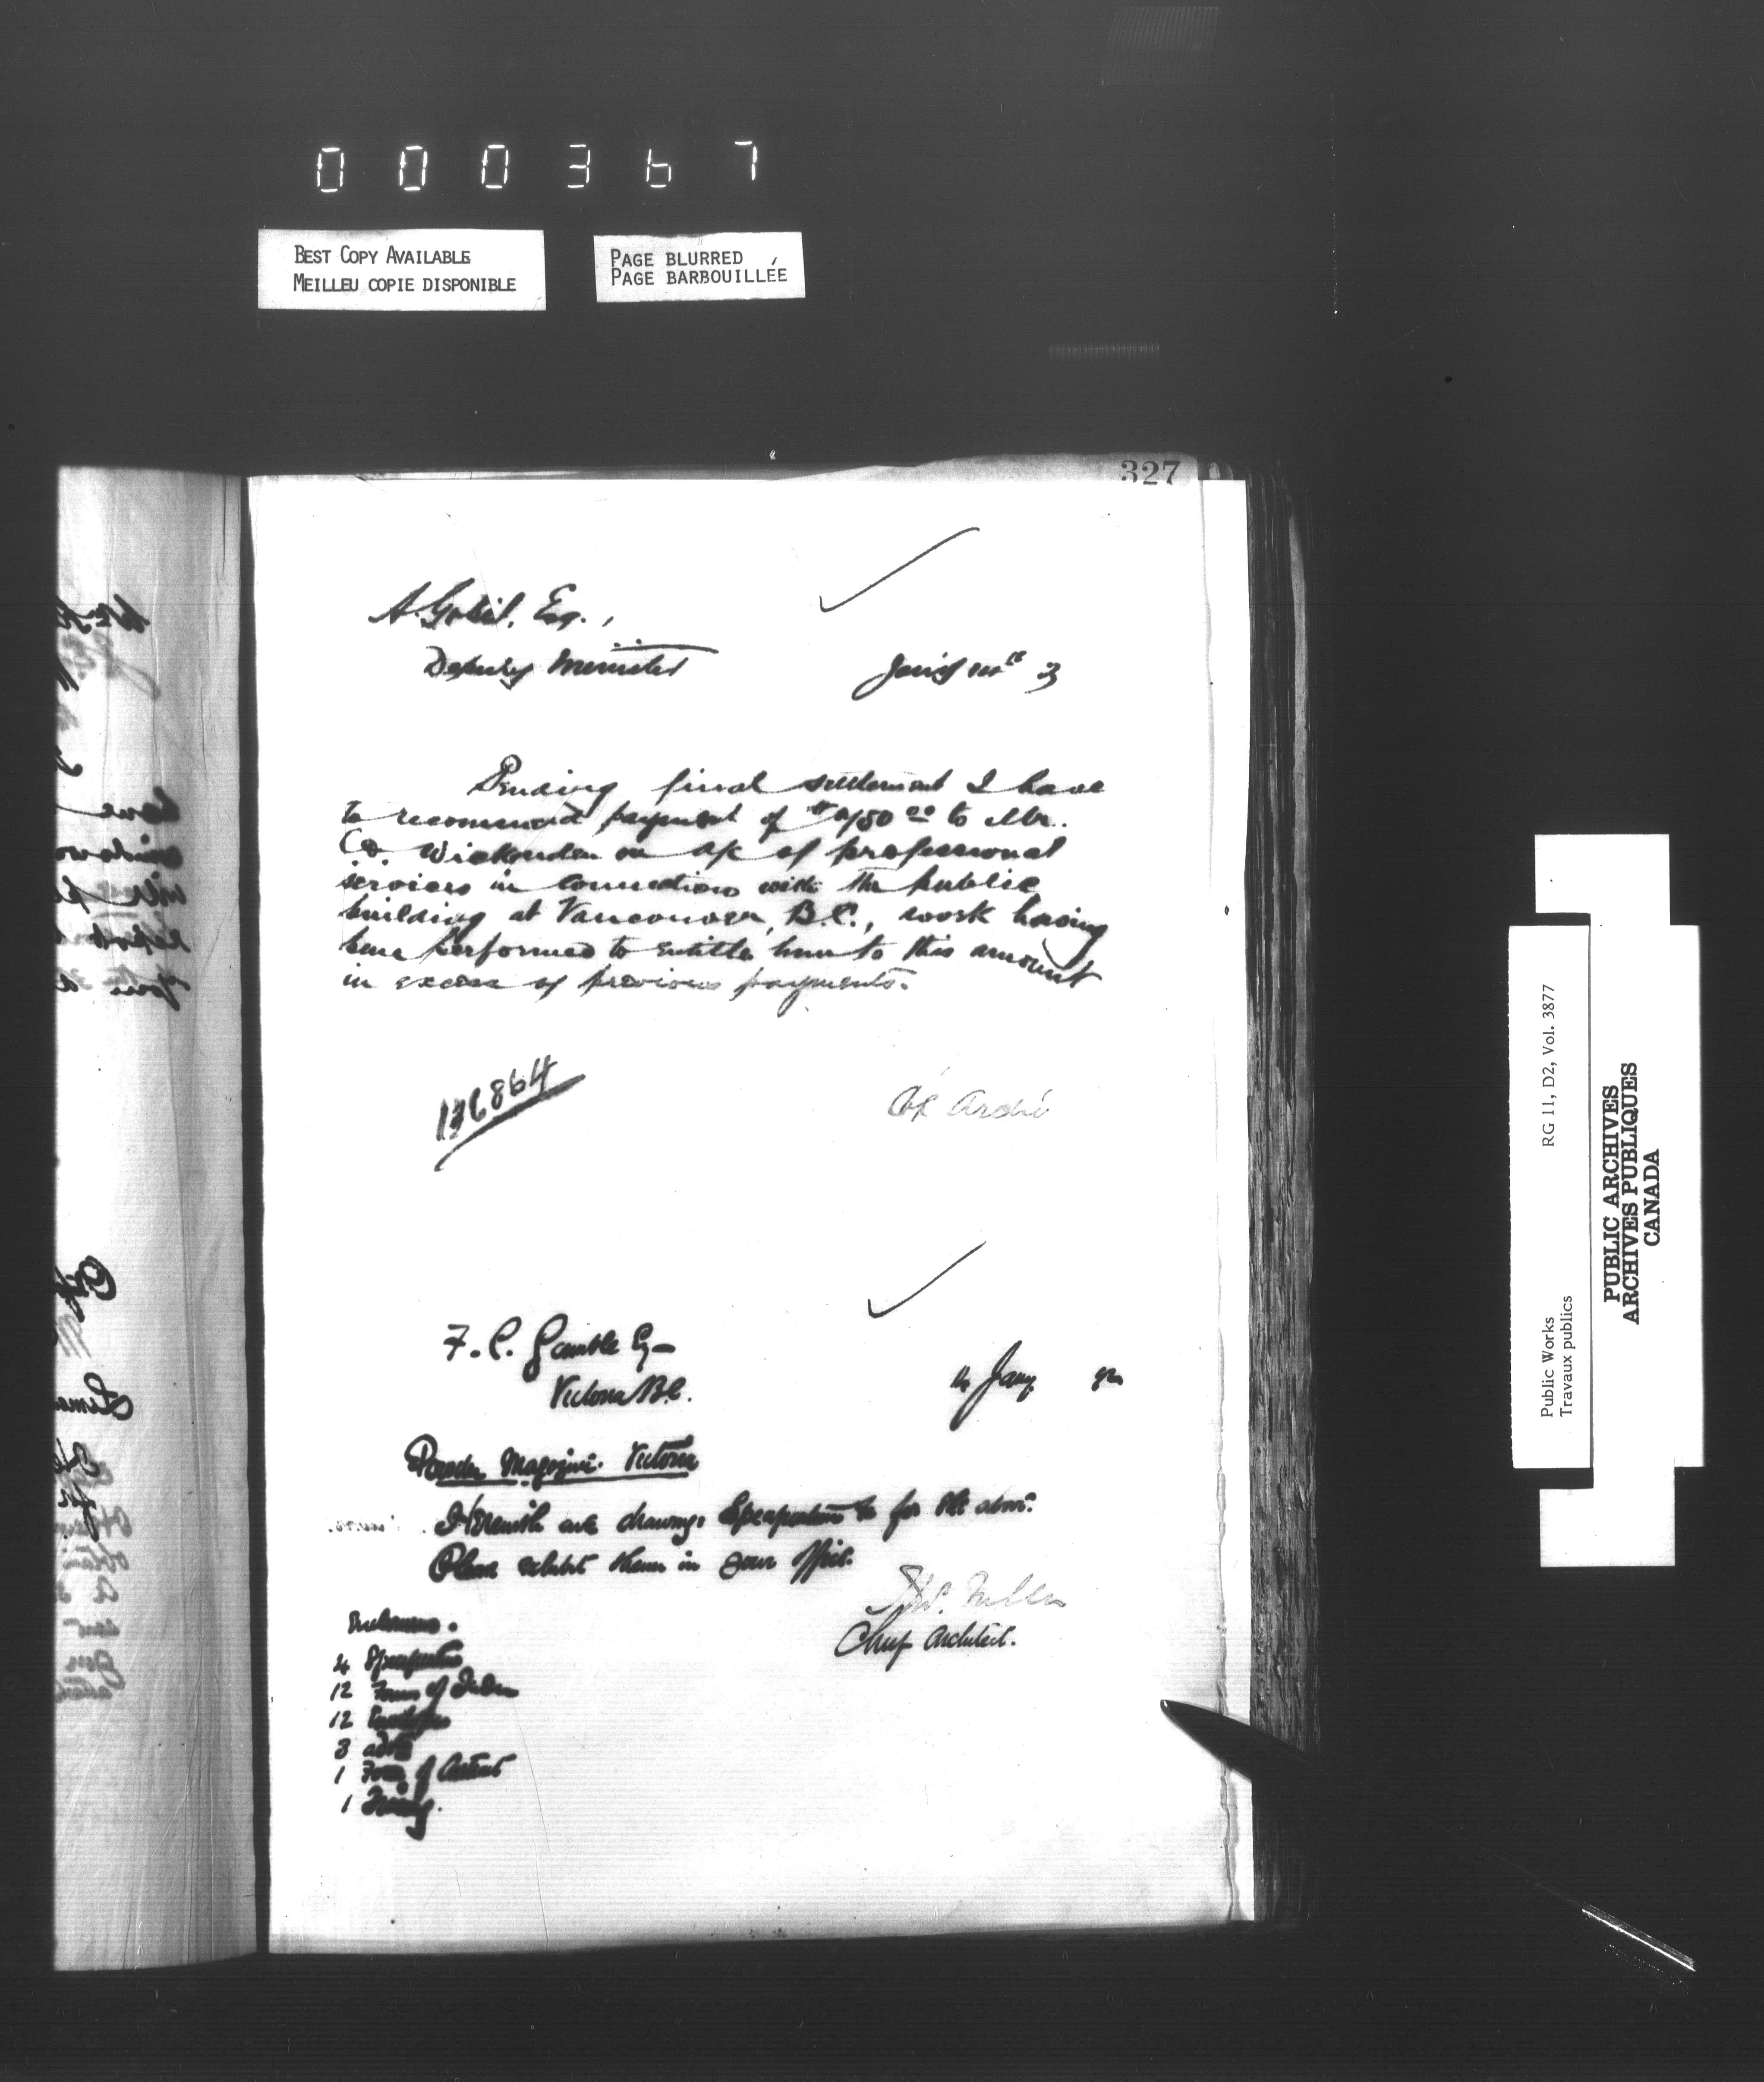 000367
BEST COPY AVAILABLE
MEILLEU COPIE DISPONIBLE
PAGE BLURRED
PAGE BARBOUILLÉE
327
A. Gobeil, Esq.,
Deputy Minister
Jan'y 14th 3
Pending final settlement I have
to recommend payment of $ 50 00 to Mr.
C.O. Wickenden on a/c of professional
services in connection with the public
building at Vancouver, B.C., work having
been performed to entitle him to this amount
in excess of previous payments.
136864
Cf Archt
F. C. Gamble Esq
Victoria B.C.
14 Jany
Powder Magazine. Victoria
Herewith are drawings Specification &c for the above.
Please exhibit them in your office.
Thos. Fuller
Chief Architect.
Enclosures.
4 Specification
12 Forms of Tender
12 Envelopes
3 advts
1 Form of Contract
1
RG 11, D2, Vol. 3877
Public Works
Travaux publics
PUBLIC ARCHIVES
ARCHIVES PUBLIQUES
CANADA